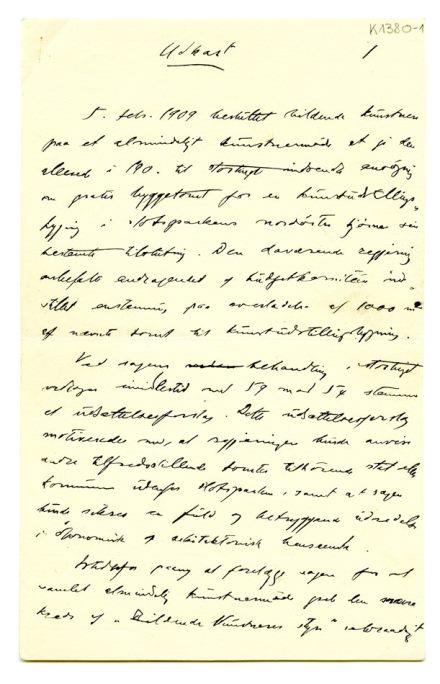 K1380-1
Udkast
1
5. feb. 1909 besluttet bildende kunstnere
paa et almindeligt kunstnermøde at gi den
i no. til stortinget indsende andragende
om gratis byggetomt for en kunstudstillings-
bygning i slotsparkens nordøstre hjørne
bestemte tilslutning. Den daværende regjering
anbefalte andragendet og budgetkomiteen ind-
stillet enstemmig paa avstaaelse af 1000 m²
af nævnte tomt til kunstudstillingsbygning.
Ved sagens behandling i stortinget
vedtoges imidlertid med 59 mod 54 stemmer
et utsættelsesforslag. Dette utsættelsesforslag
motivertes med, at regjeringen kunde anvise
andre tilfredsstillende tomter tilhørende stat eller
kommune utenfor slotsparken, samt at sagen
kunde sikres en fuld og betryggende utredelse
i økonomisk og arkitektonisk henseende.
at forelægge sagen for et
samlet almindelig kunstnermøde
kreds af "Bildende Kunstneres Styre"